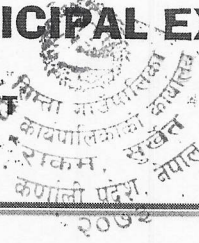 ICIPAL EX
सिम्ता गाउँपालिका
कार्यपालिकाको कार्यालय
राकम सुर्खेत
कर्णाली प्रदेश नेपाल
२०७३